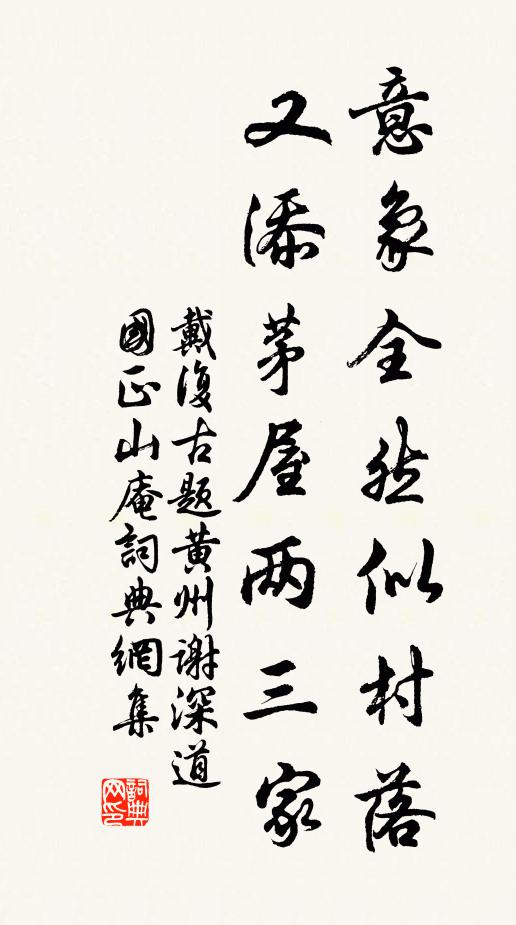 意象全然似村落
又添茅屋两三家
戴復古题黄州谢深道
國正山庵詞典網集
詞典
网印